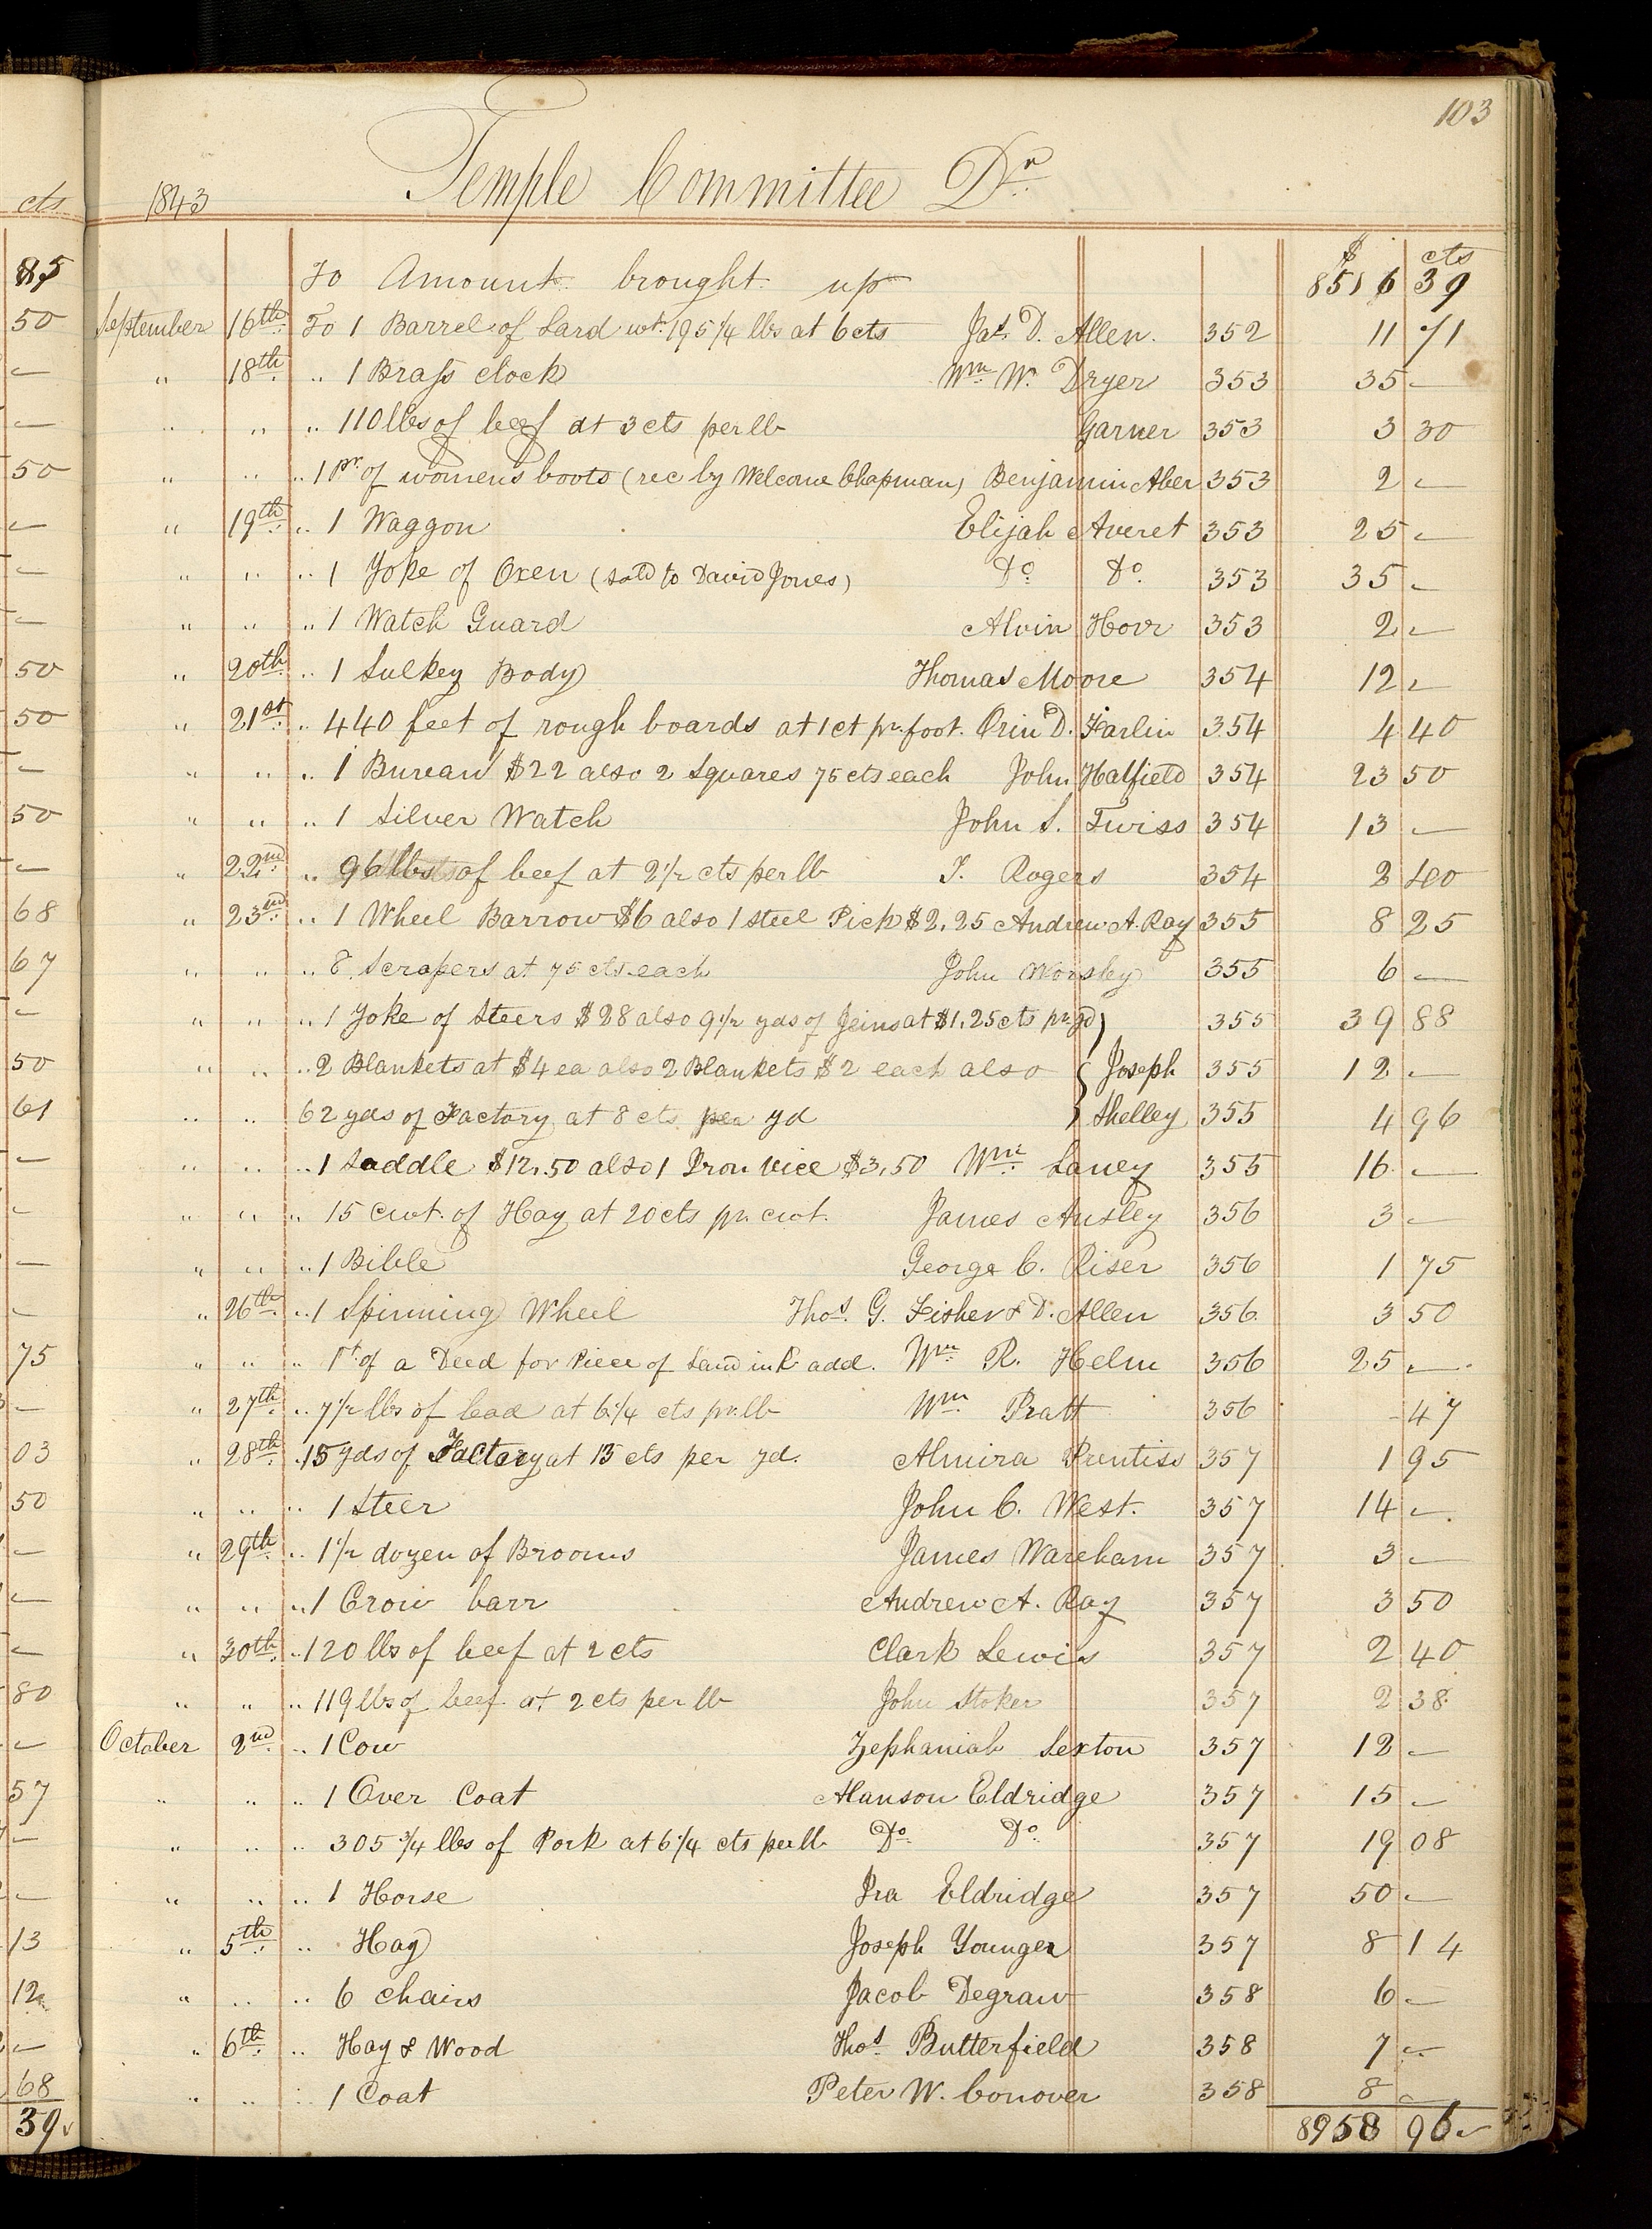 103
1843 Temple Committee Dr.
$ cts
To Amount brought up 8516 39
September 16th. To 1 Barrel of Lard wt. 195 1/4 lbs at 6 cts Jas. D. Allen. 352 11 71
" 18th. " 1 Brass clock Wm. W. Dryer 353 35 —
" " " 110 lbs of beef at 3 cts per lb Garner 353 3 30
" " " 1 Pr. of women's boots (rec by Welcome Chapman) Benjamin Aber 353 2 —
" 19th. " 1 Waggon Elijah Averet 353 25 —
" " " 1 Yoke of Oxen (sold to David Jones) Do. Do. 353 35 —
" " " 1 Watch Guard Alvin Horr 353 2 —
" 20th. " 1 Sulkey Body Thomas Moore 354 12 —
" 21st. " 440 feet of rough boards at 1 ct pr. foot. Orin D. Farlin 354 4 40
" " " 1 Bureau $22 also 2 Squares 75 cts each John Hatfield 354 23 50
" " " 1 Silver Watch John S. Twiss 354 13 —
" 22nd. " 96 lbs of beef at 2 1/2 cts per lb T. Rogers 354 2 40
" 23rd. " 1 Wheel Barrow $6 also 1 steel Pick $2.25 Andrew A. Ray 355 8 25
" " " 8 Scrapers at 75 cts each John Worsley 355 6 —
" " " 1 Yoke of Steers $28 also 9 1/2 yds of Jeins at $1.25 cts pr. yd 355 39 88
" " " 2 Blankets at $4 ea also 2 Blankets $2 each also Joseph 355 12 —
" " 62 yds of Factory at 8 cts per yd Shelley 355 4 96
" " " 1 Saddle $12.50 also 1 Iron Vice $3.50 Wm. Laney 355 16 —
" " " 15 cwt. of Hay at 20 cts pr. cwt. James Ansley 356 3 —
" " " 1 Bible George C. Riser 356 1 75
" 26th. " 1 Spinning Wheel Thos. G. Fisher & D. Allen 356 3 50
" " " Pt. of a Deed for Piece of Land in K. add. Wm. R. Helm 356 25 —
" 27th. " 7 1/2 lbs of lead at 6 1/4 cts pr. lb Wm. Pratt 356 - 47
" 28th. " 15 yds of Factory at 13 cts per yd. Almira Prentiss 357 1 95
" " " 1 Steer John C. West. 357 14 —
" 29th. " 1 1/2 dozen of Brooms James Wareham 357 3 —
" " " 1 Crow barr Andrew A. Ray 357 3 50
" 30th. " 120 lbs of beef at 2 cts Clark Lewis 357 2 40
" " " 119 lbs of beef at 2 cts per lb John Stoker 357 2 38
October 2nd. " 1 Cow Zephaniah Sexton 357 12 —
" " " 1 Over Coat Alanson Eldridge 357 15 —
" " " 305 3/4 lbs of Pork at 6 1/4 cts per lb Do. Do. 357 19 08
" " " 1 Horse Ira Eldridge 357 50 —
" 5th. " Hay Joseph Younger 357 8 14
" " " 6 Chairs Jacob Degraw 358 6 —
" 6th. " Hay & Wood Thos. Butterfield 358 7 —
" " " 1 Coat Peter W. Conover 358 8 —
8958 96
cts
85
50
—
—
50
—
—
—
50
50
—
50
—
68
67
—
50
61
—
—
—
—
75
—
03
50
—
—
—
80
—
57
—
—
13
12
—
68
39